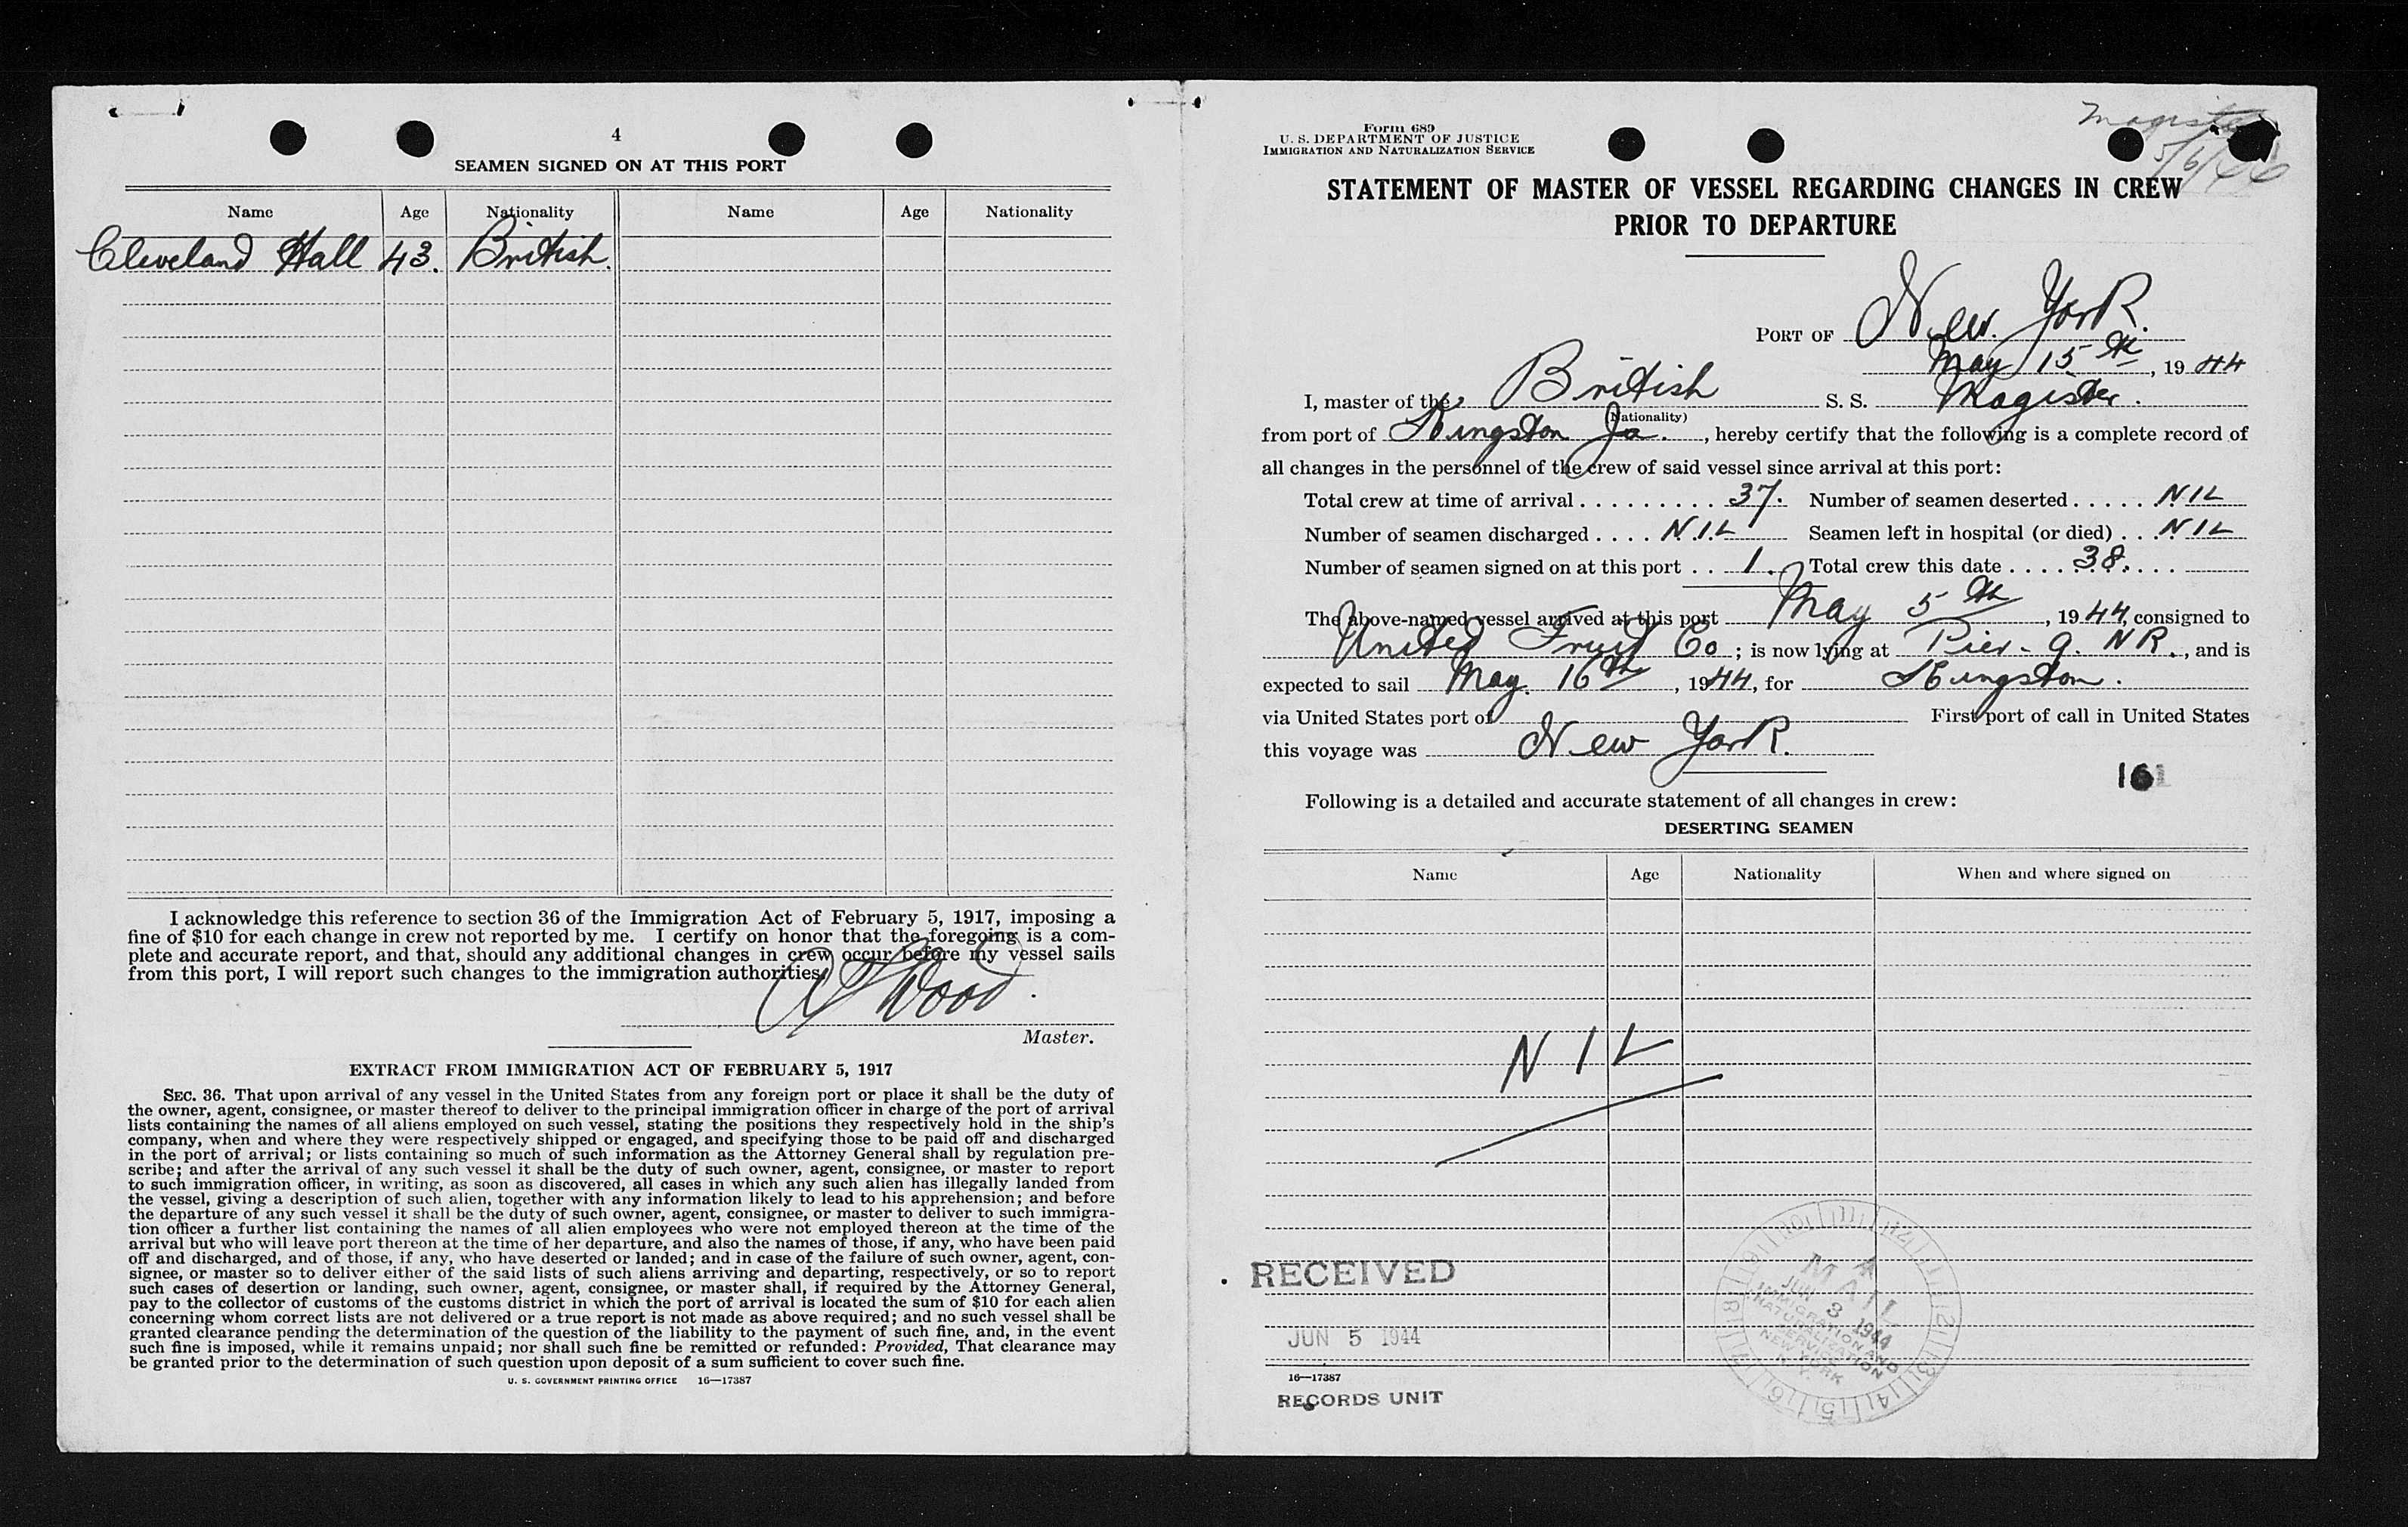 4
SEAMEN SIGNED ON AT THIS PORT
Name Age Nationality Name Age Nationality
Cleveland Hall 43. British.
I acknowledge this reference to section 36 of the Immigration Act of February 5, 1917, imposing a
fine of $10 for each change in crew not reported by me. I certify on honor that the foregoing is a com-
plete and accurate report, and that, should any additional changes in crew occur before my vessel sails
from this port, I will report such changes to the immigration authorities.
Wood.
Master.
EXTRACT FROM IMMIGRATION ACT OF FEBRUARY 5, 1917
SEC. 36. That upon arrival of any vessel in the United States from any foreign port or place it shall be the duty of
the owner, agent, consignee, or master thereof to deliver to the principal immigration officer in charge of the port of arrival
lists containing the names of all aliens employed on such vessel, stating the positions they respectively hold in the ship's
company, when and where they were respectively shipped or engaged, and specifying those to be paid off and discharged
in the port of arrival; or lists containing so much of such information as the Attorney General shall by regulation pre-
scribe; and after the arrival of any such vessel it shall be the duty of such owner, agent, consignee, or master to report
to such immigration officer, in writing, as soon as discovered, all cases in which any such alien has illegally landed from
the vessel, giving a description of such alien, together with any information likely to lead to his apprehension; and before
the departure of any such vessel it shall be the duty of such owner, agent, consignee, or master to deliver to such immigra-
tion officer a further list containing the names of all alien employees who were not employed thereon at the time of the
arrival but who will leave port thereon at the time of her departure, and also the names of those, if any, who have been paid
off and discharged, and of those, if any, who have deserted or landed; and in case of the failure of such owner, agent, con-
signee, or master so to deliver either of the said lists of such aliens arriving and departing, respectively, or so to report
such cases of desertion or landing, such owner, agent, consignee, or master shall, if required by the Attorney General,
pay to the collector of customs of the customs district in which the port of arrival is located the sum of $10 for each alien
concerning whom correct lists are not delivered or a true report is not made as above required; and no such vessel shall be
granted clearance pending the determination of the question of the liability to the payment of such fine, and, in the event
such fine is imposed, while it remains unpaid; nor shall such fine be remitted or refunded: Provided, That clearance may
be granted prior to the determination of such question upon deposit of a sum sufficient to cover such fine.
U. S. GOVERNMENT PRINTING OFFICE 16—17387
Form 689
U. S. DEPARTMENT OF JUSTICE
IMMIGRATION AND NATURALIZATION SERVICE
Magister
STATEMENT OF MASTER OF VESSEL REGARDING CHANGES IN CREW
PRIOR TO DEPARTURE
PORT OF New York.
May 15th, 1944
I, master of the British S. S. Magister.
(Nationality)
from port of Kingston Ja., hereby certify that the following is a complete record of
all changes in the personnel of the crew of said vessel since arrival at this port:
Total crew at time of arrival . . . . . . . . . 37. Number of seamen deserted . . . . . NIL
Number of seamen discharged . . . . N.I.L Seamen left in hospital (or died) . . . NIL
Number of seamen signed on at this port . . 1. Total crew this date . . . . 38. . . .
The above-named vessel arrived at this port May 5th, 1944, consigned to
United Fruit Co; is now lying at Pier-9. NR., and is
expected to sail May 16th, 1944, for Kingston.
via United States port of First port of call in United States
this voyage was New York.
161
Following is a detailed and accurate statement of all changes in crew:
DESERTING SEAMEN
Name Age Nationality When and where signed on
NIL
RECEIVED
JUN 5 1944
16—17387
RECORDS UNIT
MAIL
JUN 3 1944
IMMIGRATION AND
NATURALIZATION
SERVICE
NEW YORK